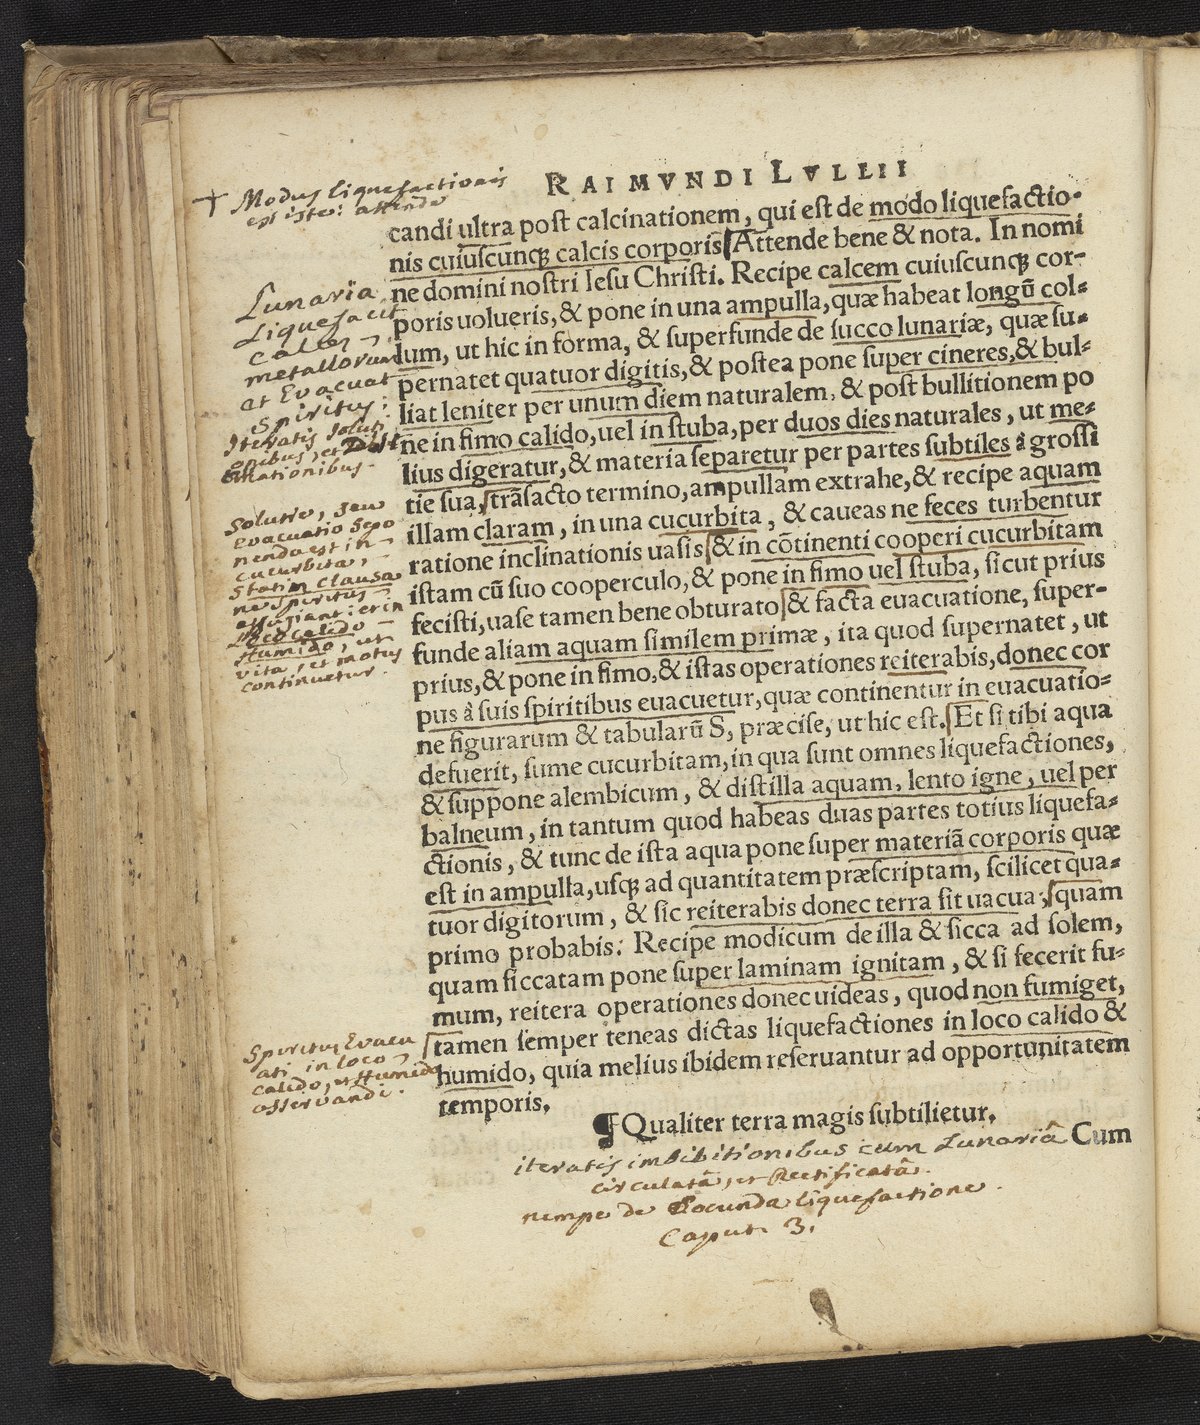 RAIMVNDI LVLLII
+ Modus liquefactionis
est iste: attende
candi ultra post calcinationem, qui est de modo liquefactio-
nis cuiuscunqȝ calcis corporis Attende bene & nota. In nomi
ne domini nostri Iesu Christi. Recipe calcem cuiuscunqȝ cor-
poris uolueris, & pone in una ampulla, quæ habeat longũ col-
lum, ut hic in forma, & superfunde de succo lunariæ, quæ su-
pernatet quatuor digitis, & postea pone super cineres, & bul-
liat leniter per unum diem naturalem, & post bullitionem po
ne in fimo calido, uel in stuba, per duos dies naturales, ut me-
lius digeratur, & materia separetur per partes subtiles à grossi
tie sua, trãsacto termino, ampullam extrahe, & recipe aquam
illam claram, in una cucurbita, & caueas ne feces turbentur
ratione inclinationis uasis & in cõtinenti cooperi cucurbitam
istam cũ suo cooperculo, & pone in fimo uel stuba, sicut prius
fecisti, uase tamen bene obturato & facta euacuatione, super-
funde aliam aquam similem primæ, ita quod supernatet, ut
prius, & pone in fimo, & istas operationes reiterabis, donec cor
pus à suis spiritibus euacuetur, quæ continentur in euacuatio-
ne figurarum & tabularũ S, præcise, ut hic est. Et si tibi aqua
defuerit, sume cucurbitam, in qua sunt omnes liquefactiones,
& suppone alembicum, & distilla aquam, lento igne, uel per
balneum, in tantum quod habeas duas partes totius liquefa-
ctionis, & tunc de ista aqua pone super materiã corporis quæ
est in ampulla, usqȝ ad quantitatem præscriptam, scilicet qua-
tuor digitorum, & sic reiterabis donec terra sit uacua, quam
primo probabis: Recipe modicum de illa & sicca ad solem,
quam siccatam pone super laminam ignitam, & si fecerit fu-
mum, reitera operationes donec uideas, quod non fumiget,
tamen semper teneas dictas liquefactiones in loco calido &
humido, quia melius ibidem reseruantur ad opportunitatem
temporis.
¶ Qualiter terra magis subtilietur.
Cum
Lunaria
Liquefacit
calcem
metallorum
et Evacuat
Spiritus:
Iteratis soluti
onibus, et Disti
llationibus.
Solutio, seu
evacuatio sepo
nenda est in
cucurbita,
statim clausa
ne spiritus
effugiant: et in
Loco calido
Humido, ut
vita, et motus
continuetur.
Spiritus Evacu
ati in loco
calido, et Humido
asservandi.
iteratis imbibitionibus cum Lunariâ
circulatâ, et Rectificatâ.
nempe de Secunda liquefactione.
Caput. 3.